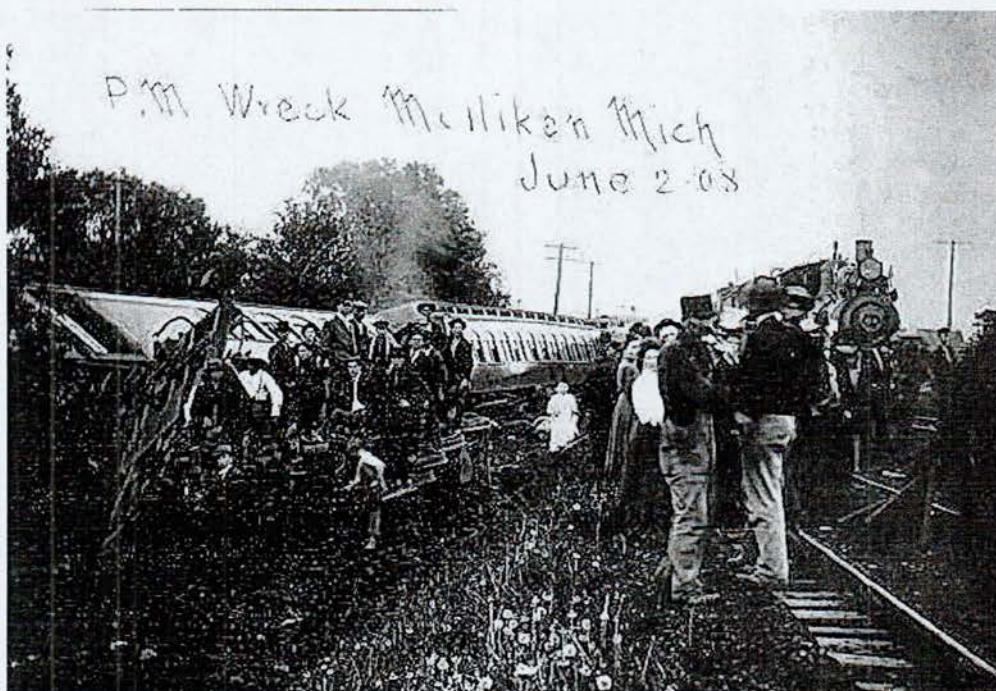 P.M. Wreck Mulliken Mich
June 2-08